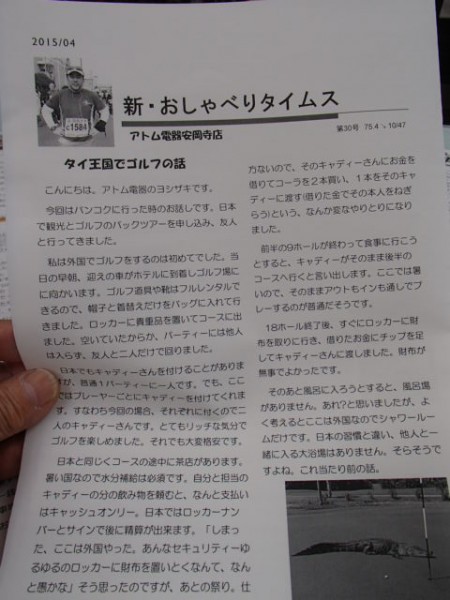 2015/04
新・おしゃべりタイムス
アトム電器安岡寺店
第30号 75.4㌔ 10/47
1584
タイ王国でゴルフの話
こんにちは、アトム電器のヨシザキです。
今回はバンコクに行った時のお話しです。日本
で観光とゴルフのパックツアーを申し込み、友人
と行ってきました。
私は外国でゴルフをするのは初めてでした。当
日の早朝、迎えの車がホテルに到着しゴルフ場に
に向かいます。ゴルフ道具や靴はフルレンタルで
きるので、帽子と着替えだけをバッグに入れて出
きました。ロッカーに貴重品を置いてコースに出
ました。空いていたからか、パーティーには他人
は入らず、友人と二人だけで回りました。
日本でもキャディーさんを付けることがありま
すが、普通1パーティーに一人です。でも、ここ
ではプレーヤーごとにキャディーを付けてくれま
す。すなわち今回の場合、それぞれに付くので二
人のキャディーさんです。とてもリッチな気分で
ゴルフを楽しめました。それでも大変格安です。
日本と同じくコースの途中に茶店があります。
暑い国なので水分補給は必須です。自分と担当の
キャディーの分の飲み物を頼むと、なんと支払い
はキャッシュオンリー。日本ではロッカーナン
バーとサインで後に精算が出来ます。「しまっ
た、ここは外国やった。あんなセキュリティーゆ
るゆるのロッカーに財布を置いとくなんて、なん
と愚かな」そう思ったのですが、あとの祭り。仕
方ないので、そのキャディーさんにお金を
借りてコーラを2本買い、1本をそのキャ
ディーに渡す(借りた金でその本人をねぎ
らう)という、なんか変なやりとりになり
ました。
前半の9ホールが終わって食事に行こう
とすると、キャディーがそのまま後半の
コースへ行くと言い出します。ここでは暑
いので、そのままアウトもインも通しでプ
レーするのが普通だそうです。
18ホール終了後、すぐにロッカーに財
布を取りに行き、借りたお金にチップを足
してキャディーさんに渡しました。財布が
無事でよかったです。
そのあと風呂に入ろうとすると、風呂場
がありません。あれ?と思いましたが、よ
く考えるとここは外国なのでシャワールー
ムだけです。日本の習慣と違い、他人と一
緒に入る大浴場はありません。そらそうで
すよね。これ当たり前の話。